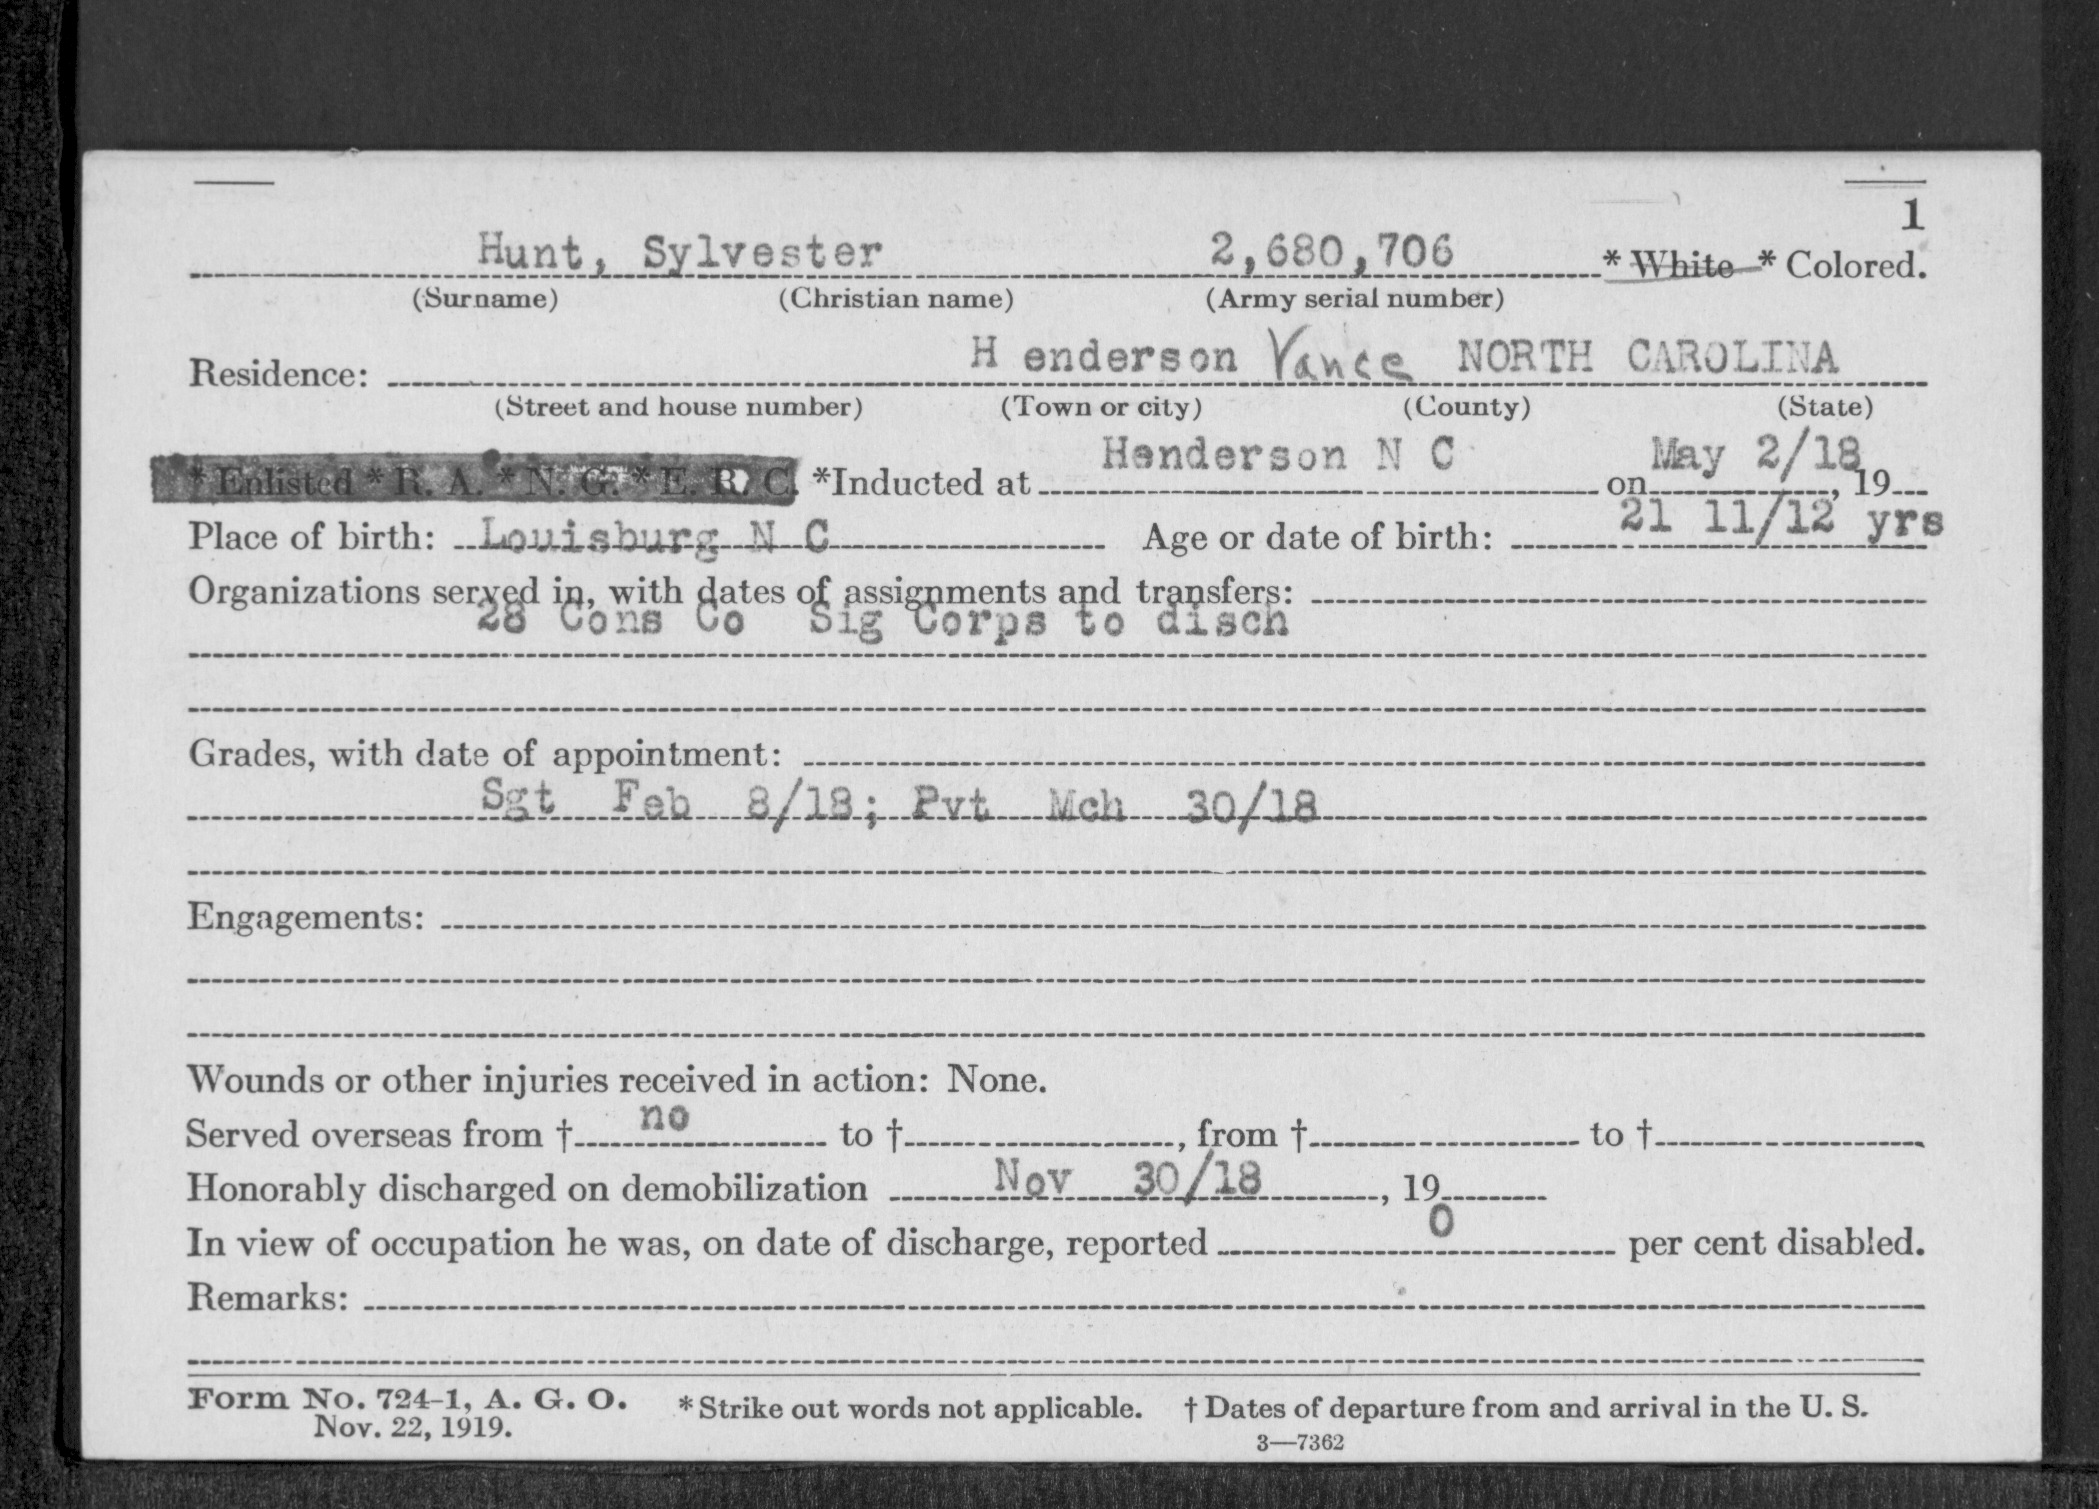 1
Hunt, Sylvester 2,680,706 * White * Colored.
(Surname) (Christian name) (Army serial number)
Residence: H enderson Vance NORTH CAROLINA
(Street and house number) (Town or city) (County) (State)
* Enlisted * R. A. * N. G. * E. R. C. *Inducted at Henderson N C on May 2/18, 19
Place of birth: Louisburg N C Age or date of birth: 21 11/12 yrs
Organizations served in, with dates of assignments and transfers:
28 Cons Co Sig Corps to disch
Grades, with date of appointment:
Sgt Feb 8/18; Pvt Mch 30/18
Engagements:
Wounds or other injuries received in action: None.
Served overseas from † no to †, from † to †
Honorably discharged on demobilization Nov 30/18, 19
In view of occupation he was, on date of discharge, reported 0 per cent disabled.
Remarks:
Form No. 724-1, A. G. O. * Strike out words not applicable. † Dates of departure from and arrival in the U. S.
Nov. 22, 1919.
3—7362